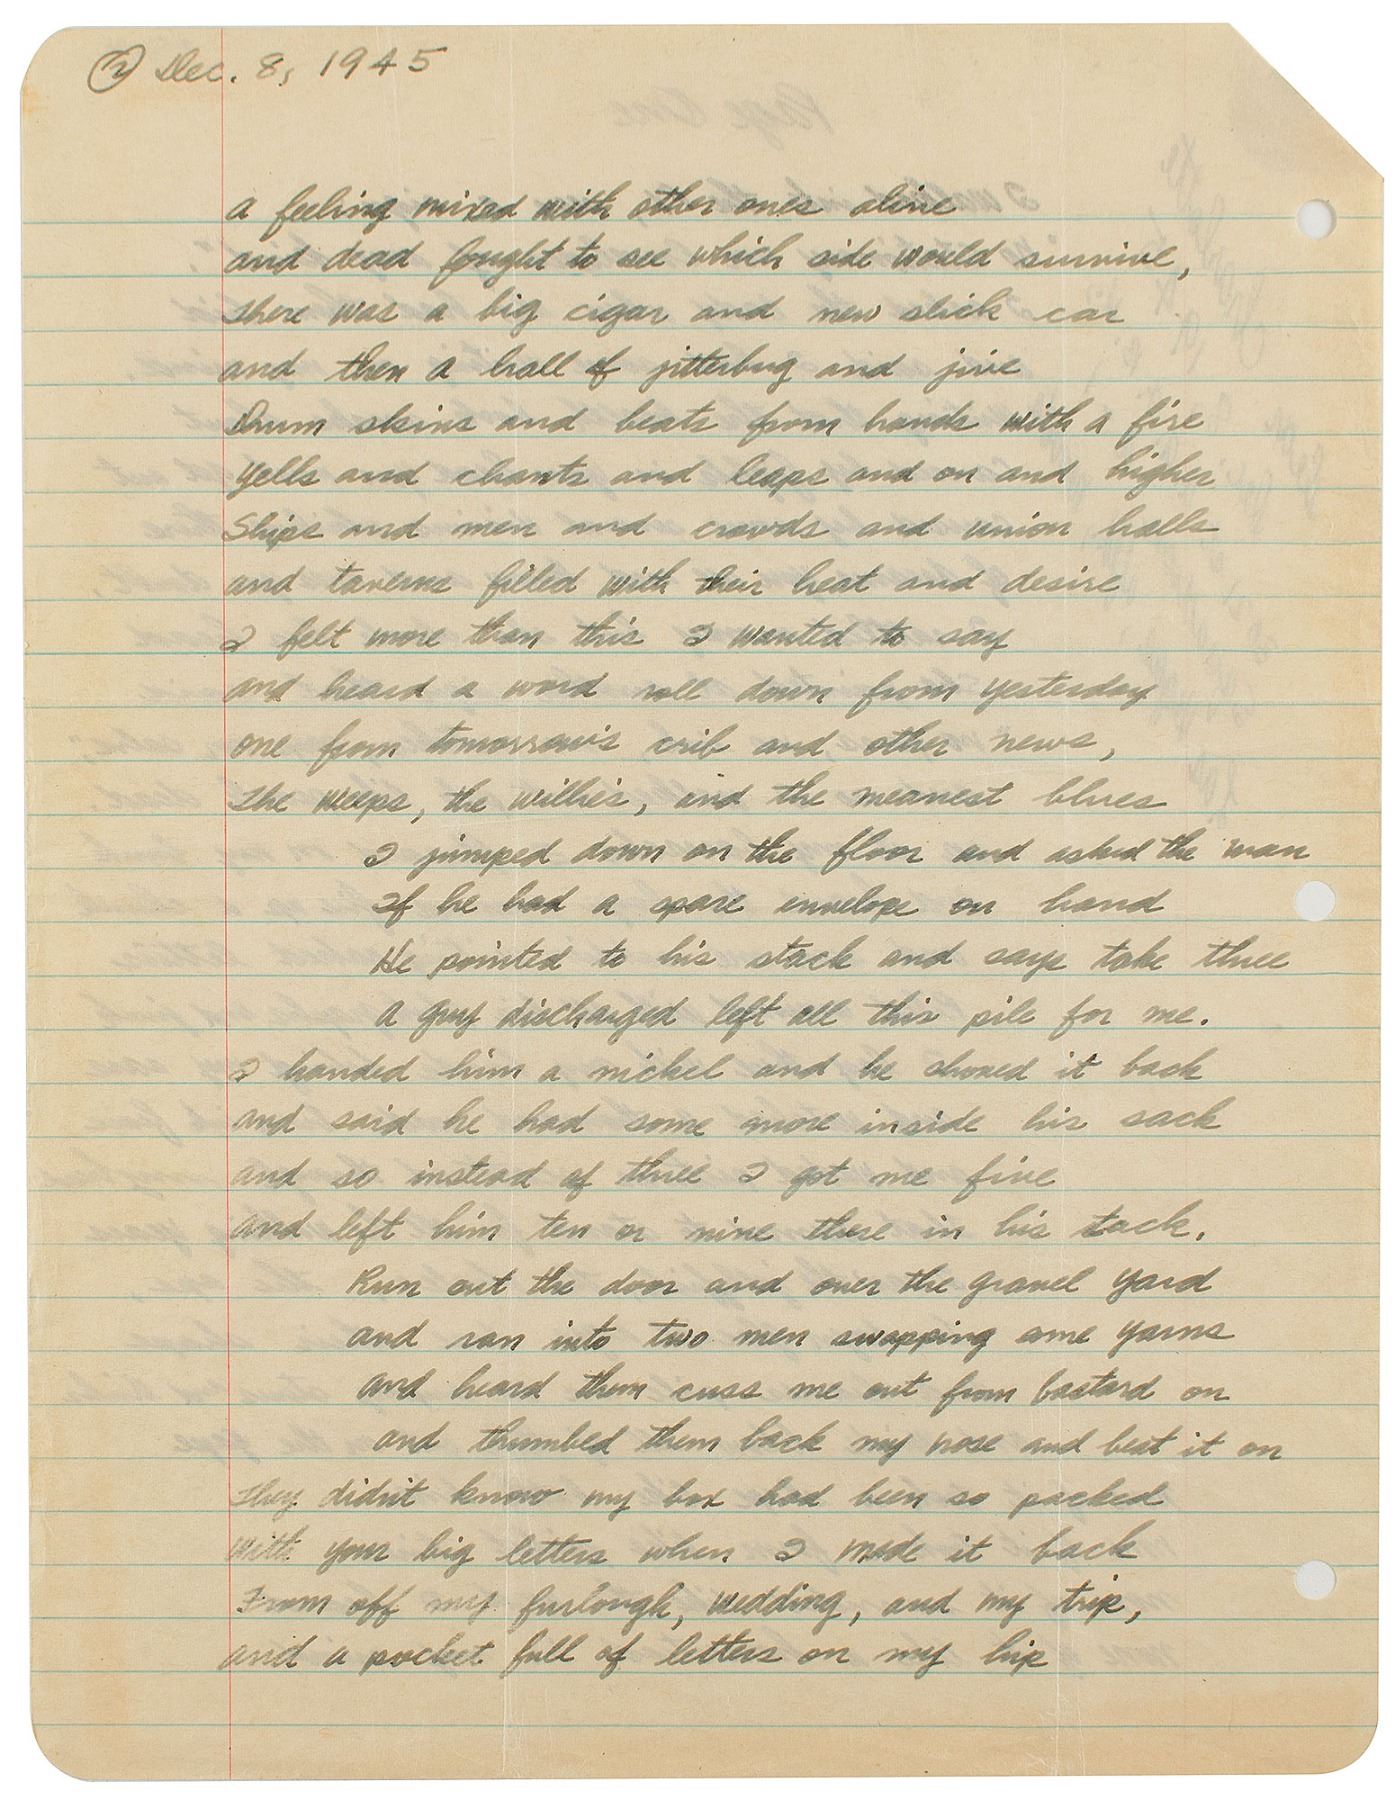 ② Dec. 8, 1945
Page One
a feeling mixed with other ones alive
and dead fought to see which side would survive,
There was a big cigar and new slick car
and then a hall of jitterbug and jive
Drum skins and beats from hands with a fire
Yells and chants and leaps and on and higher
Ships and men and crowds and union halls
and taverns filled with their heat and desire
I felt more than this I wanted to say
and heard a word roll down from yesterday
one from tomorrow's crib and other news,
The weeps, the willies, and the meanest blues
I jumped down on the floor and asked the man
If he had a spare envelope on hand
He pointed to his stack and says take three
a guy discharged left all this pile for me.
I handed him a nickel and he shoved it back
and said he had some more inside his sack
and so instead of three I got me five
and left him ten or nine there in his tack.
Run out the door and over the gravel yard
and ran into two men swapping ome yarns
and heard them cuss me out from bastard on
and thumbed them back my nose and beat it on
They didn't know my box had been so packed
with your big letters when I made it back
From off my furlough, wedding, and my trip,
and a pocket full of letters on my hip